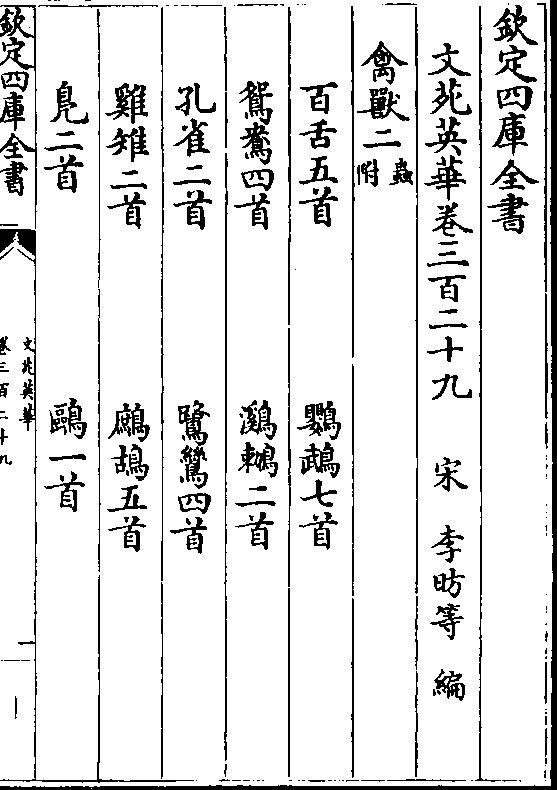 欽定四庫全書
文苑英華卷三百二十九 宋 李昉等 編
禽獸二 附蟲
百舌五首 鸚鵡七首
鴛鴦四首 鸂𪆟二首
孔雀二首 鷺鷥四首
雞雉二首 鷓鴣五首
鳧二首 鷗一首
欽定四庫全書
文苑英華
卷三百二十九
一